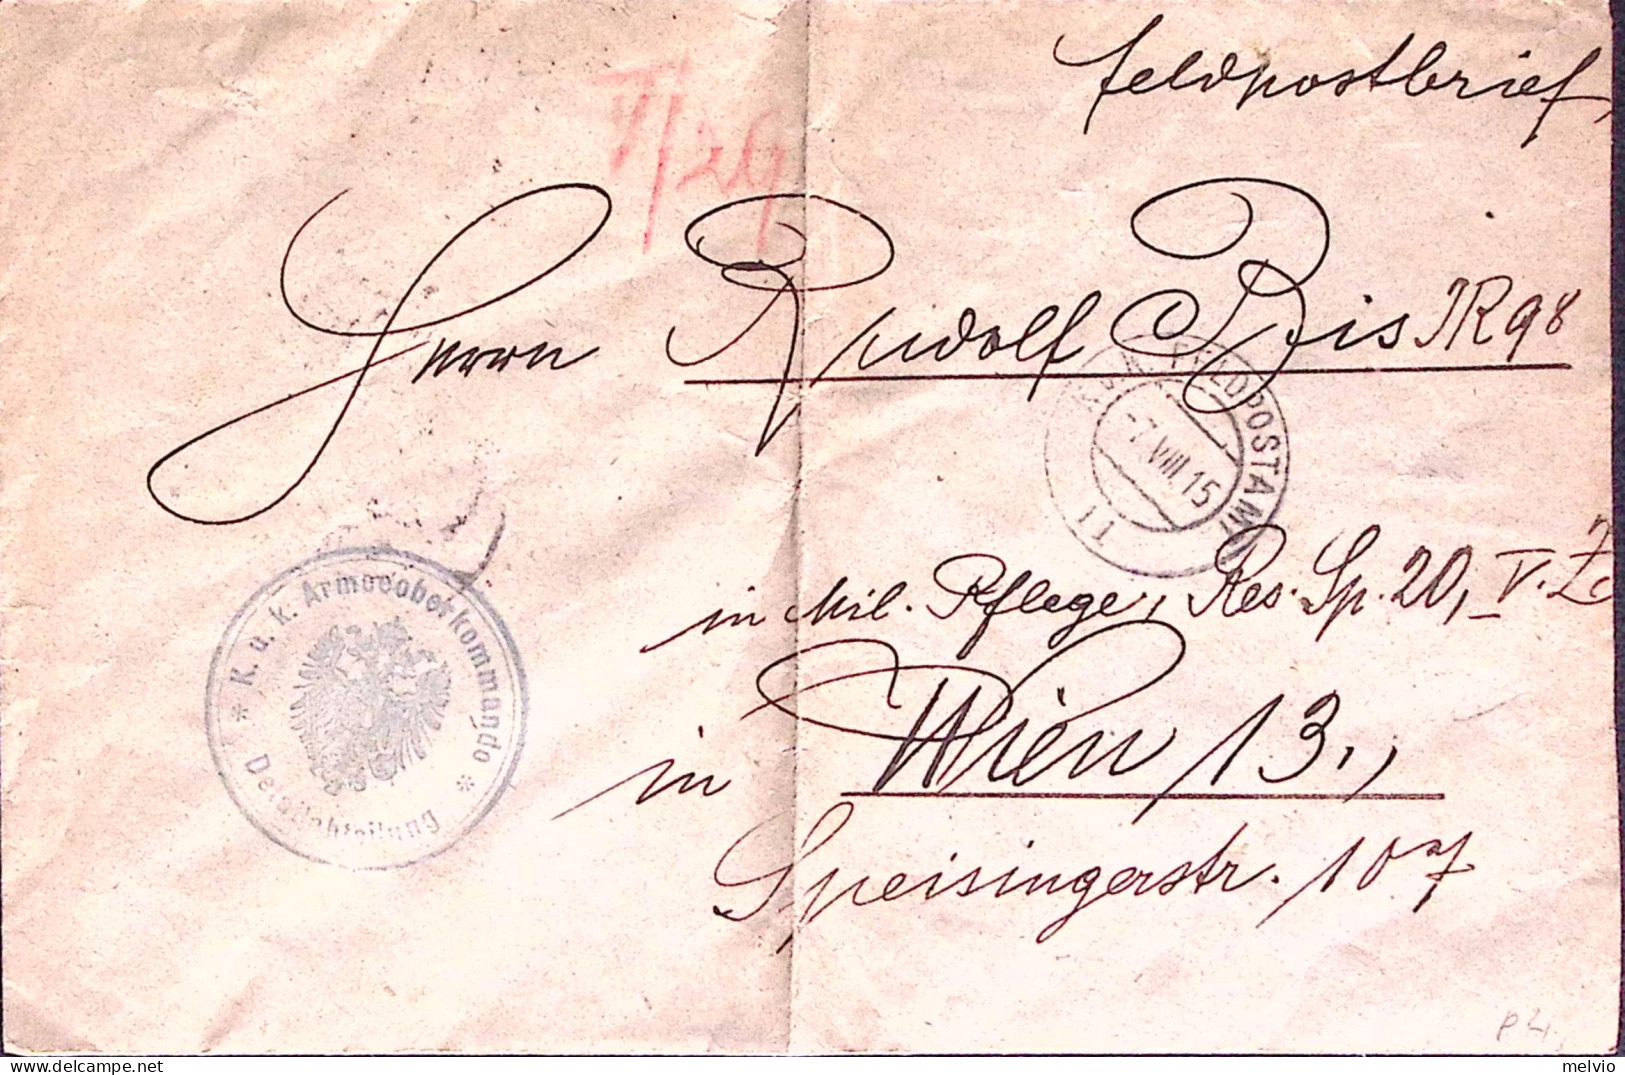 Feldpostbrief
V/29
Herrn Rudolf Bis IR 98
K.u.K. FELDPOSTAMT
-7.VIII.15
11
in Mil. Pflege, Res. Sp. 20, V. Z.
in Wien 13.,
Speisingerstr. 107
* K. u. k. Armeeoberkommando *
Detailabteilung
P 4
delcampe.net
melvio